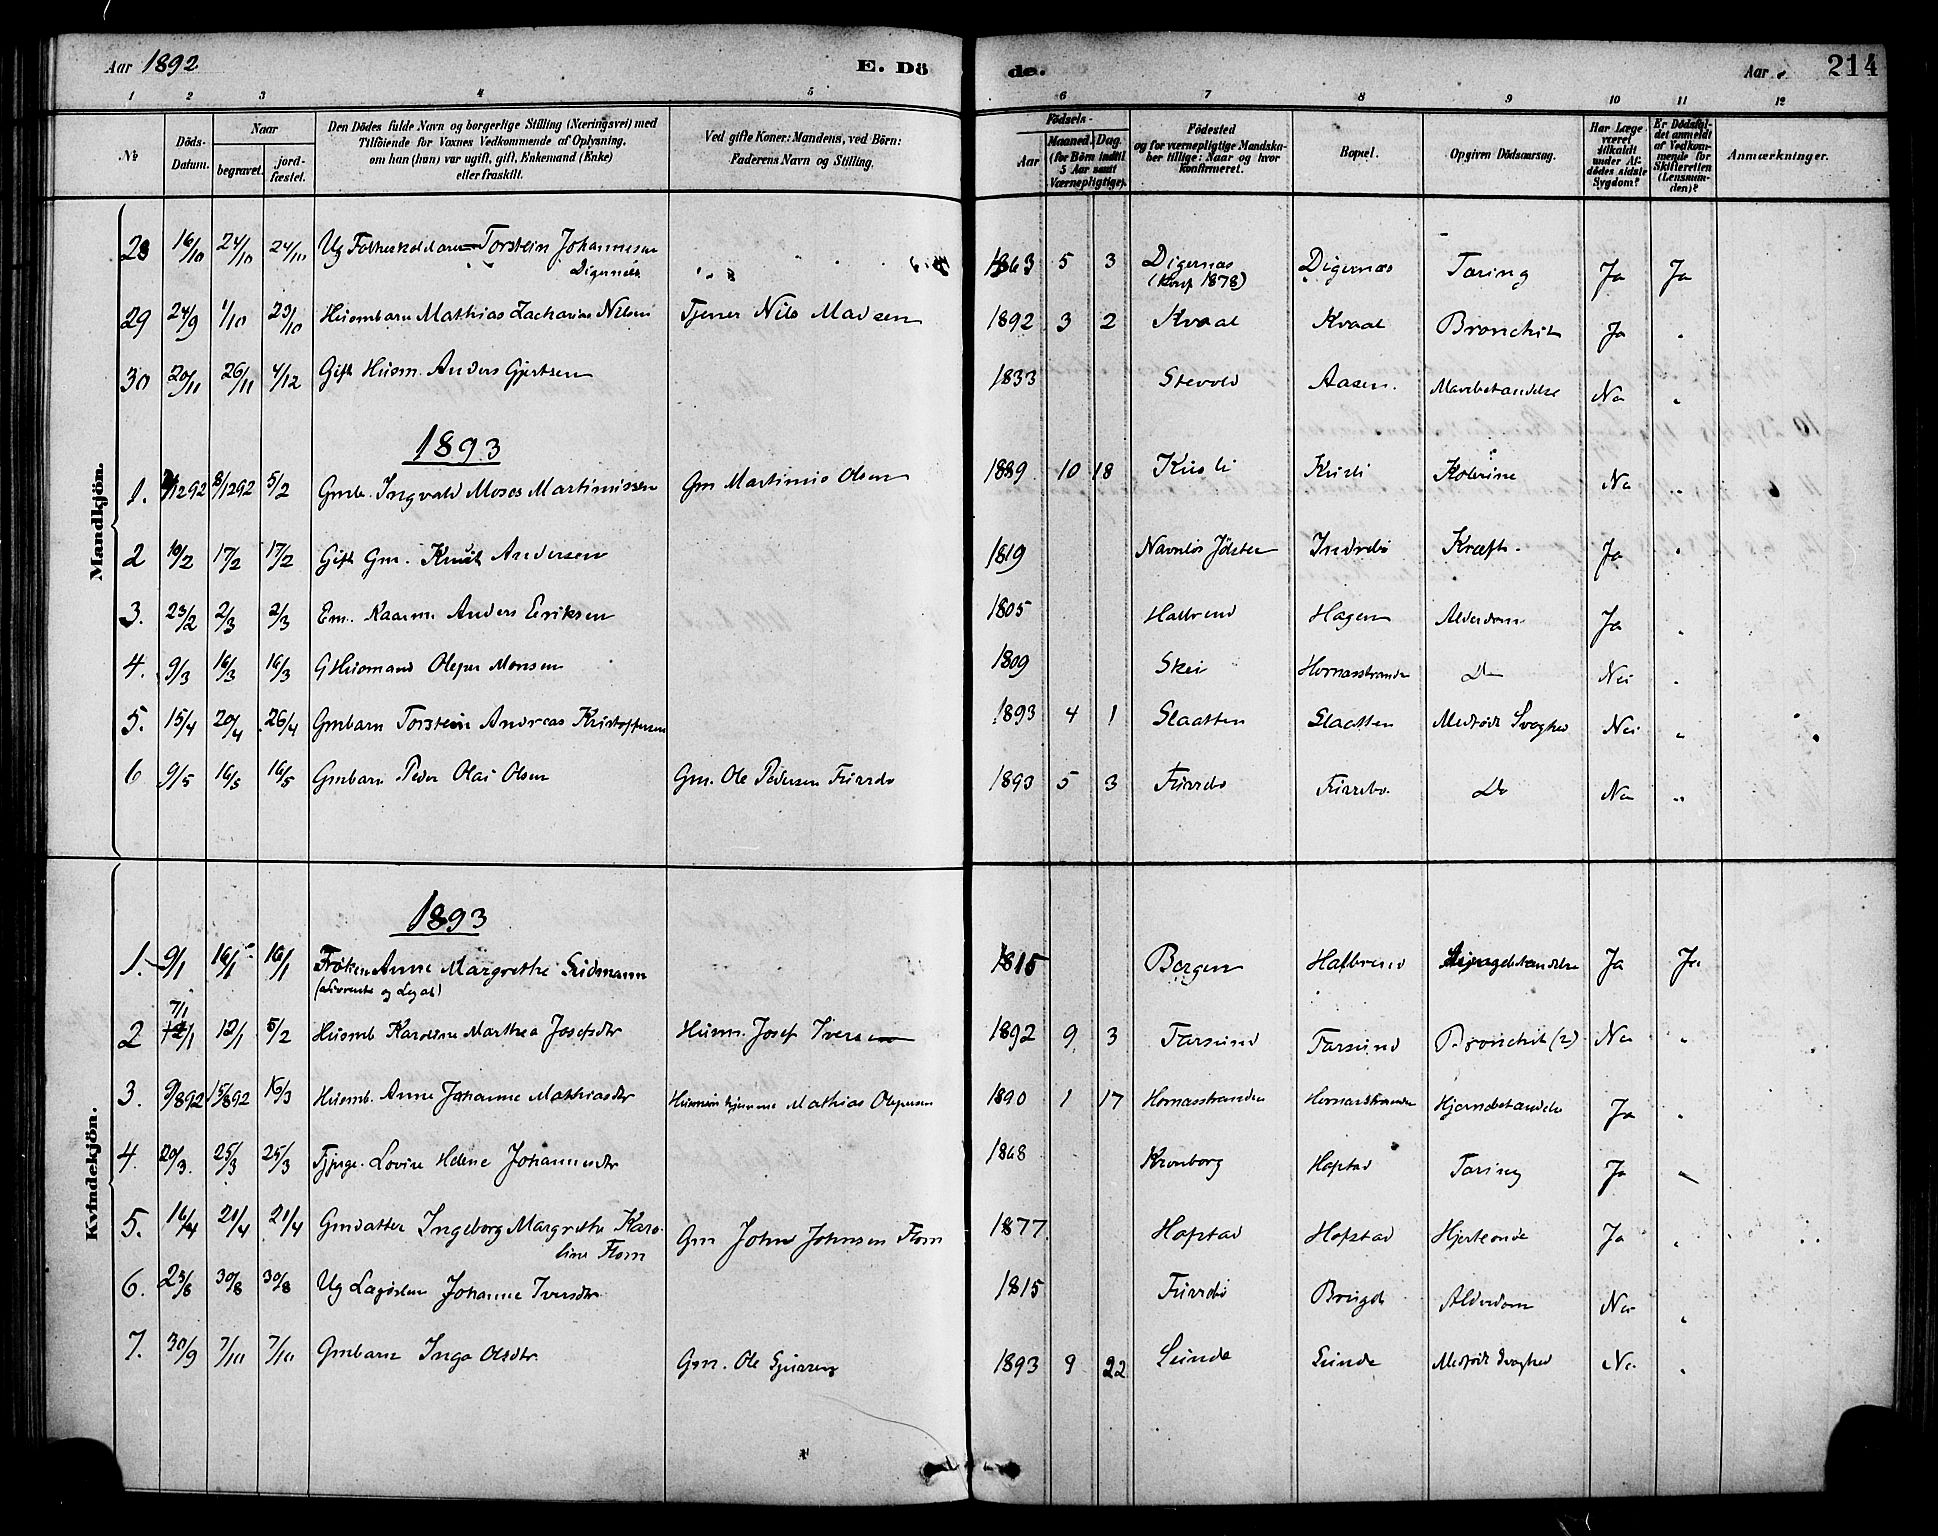 Aar 1892 E. Dö de. Aar 214
1 2 3 4 5 6 7 8 9 10 11 12
№
Döds-Datum.
Naar
begravet.
jord-fæstet.
Den Dödes fulde Navn og borgerlige Stilling (Næringsvei) med
Tilföiende for Voxnes Vedkommende af Oplysning,
om han (hun) var ugift, gift, Enkemand (Enke)
eller fraskilt.
Ved gifte Koner: Mandens, ved Börn:
Faderens Navn og Stilling.
Födsels-
Aar
Maaned. Dag.
(for Börn indtil
5 Aar samt
Værnepligtige).
Födested
og for værnepligtige Mandska-
ber tillige: Naar og hvor
konfirmeret.
Bopæl.
Opgiven Dödsaarsag.
Har Læge
været
tilkaldt
under Af-
dödes sidste
Sygdom?
Er Dödsfal-
det anmeldt
af Vedkom-
mende for
Skifteretten
(Lensman-
den)?
Anmærkninger.
Mandkjön.
28 16/10 24/10 24/10 Ug Torstein Johannesen 1863 5 3 Digernæs Digernæs Tæring Ja Ja
Digernæs (Konf 1878)
29 24/9 1/10 23/10 Husmbarn Mathias Zacharias Nilsen Tjener Nils Madsen 1892 3 2 Kvaal Kvaal Bronchit Ja "
30 20/11 26/11 4/12 Gift Husm. Anders Gjertsen 1833 Stevold Aasen. Mavebetændelse Nei "
1893
1. /1292 8/1292 5/2 Gmb. Ingvald Moses Martinussen Gm Martinus Olsen 1889 10 18 Kusli Kusli Nei "
2 10/2 17/2 17/2 Gift Gm. Knut Andersen 1819 Navnlös Jölster Indrebö Kræft. Ja "
3. 23/2 2/3 2/3 Em. Kaarm. Anders Eriksen 1805 Halbrend Hagen Alderdom Ja "
4. 9/3 16/3 16/3 G Husmand Oleper Monsen 1809 Skei Hornasstranden Do Nei "
5. 15/4 20/4 26/4 Gmbarn Torstein Andreas Kristoffersen 1893 4 1 Slaatten Slaatten Medfödt Svaghed Nei "
6 9/5 16/5 16/5 Gmbarn Peder Olai Olsen Gm. Ole Pedersen Furrebo 1893 5 3 Furrebo Furrebo Do Nei "
Kvindekjön.
1893
1. 9/1 16/1 16/1 Fröken Anne Margrethe 1815 Bergen Halbrend Ja Ja
(Livrente og Legat)
7/1
2 12/1 12/1 5/2 Husmb Karoline Marthea Josefsdtr Husm. Josef Iversen 1892 9 3 Farsund Farsund Bronchit (?) Nei "
3. 9/892 15/892 16/3 Husmb. Anne Johanne Mathiasdtr Mathias Olepersen 1890 1 17 Hornasstranden Hornasstranden Hjernebetændelse Ja "
4. 20/3 25/3 25/3 Tjpige. Lovise Helene Johannesdtr 1868 Kronborg Hafstad Tæring Ja "
5. 16/4 21/4 21/4 Gmdatter Ingeborg Margrethe Karo- Gm John Johnsen Flom 1877 Hafstad Hafstad Hjerteonde Ja "
line Flom
6. 23/8 30/8 30/8 Ug Lægdslem Johanne Iversdtr 1815 Furrebö Alderdom Nei "
7. 30/9 7/10 7/10 Gmbarn Inga Olsdtr. Gm. Ole 1893 9 22 Sunde Sunde Medfödt Svaghed Nei "